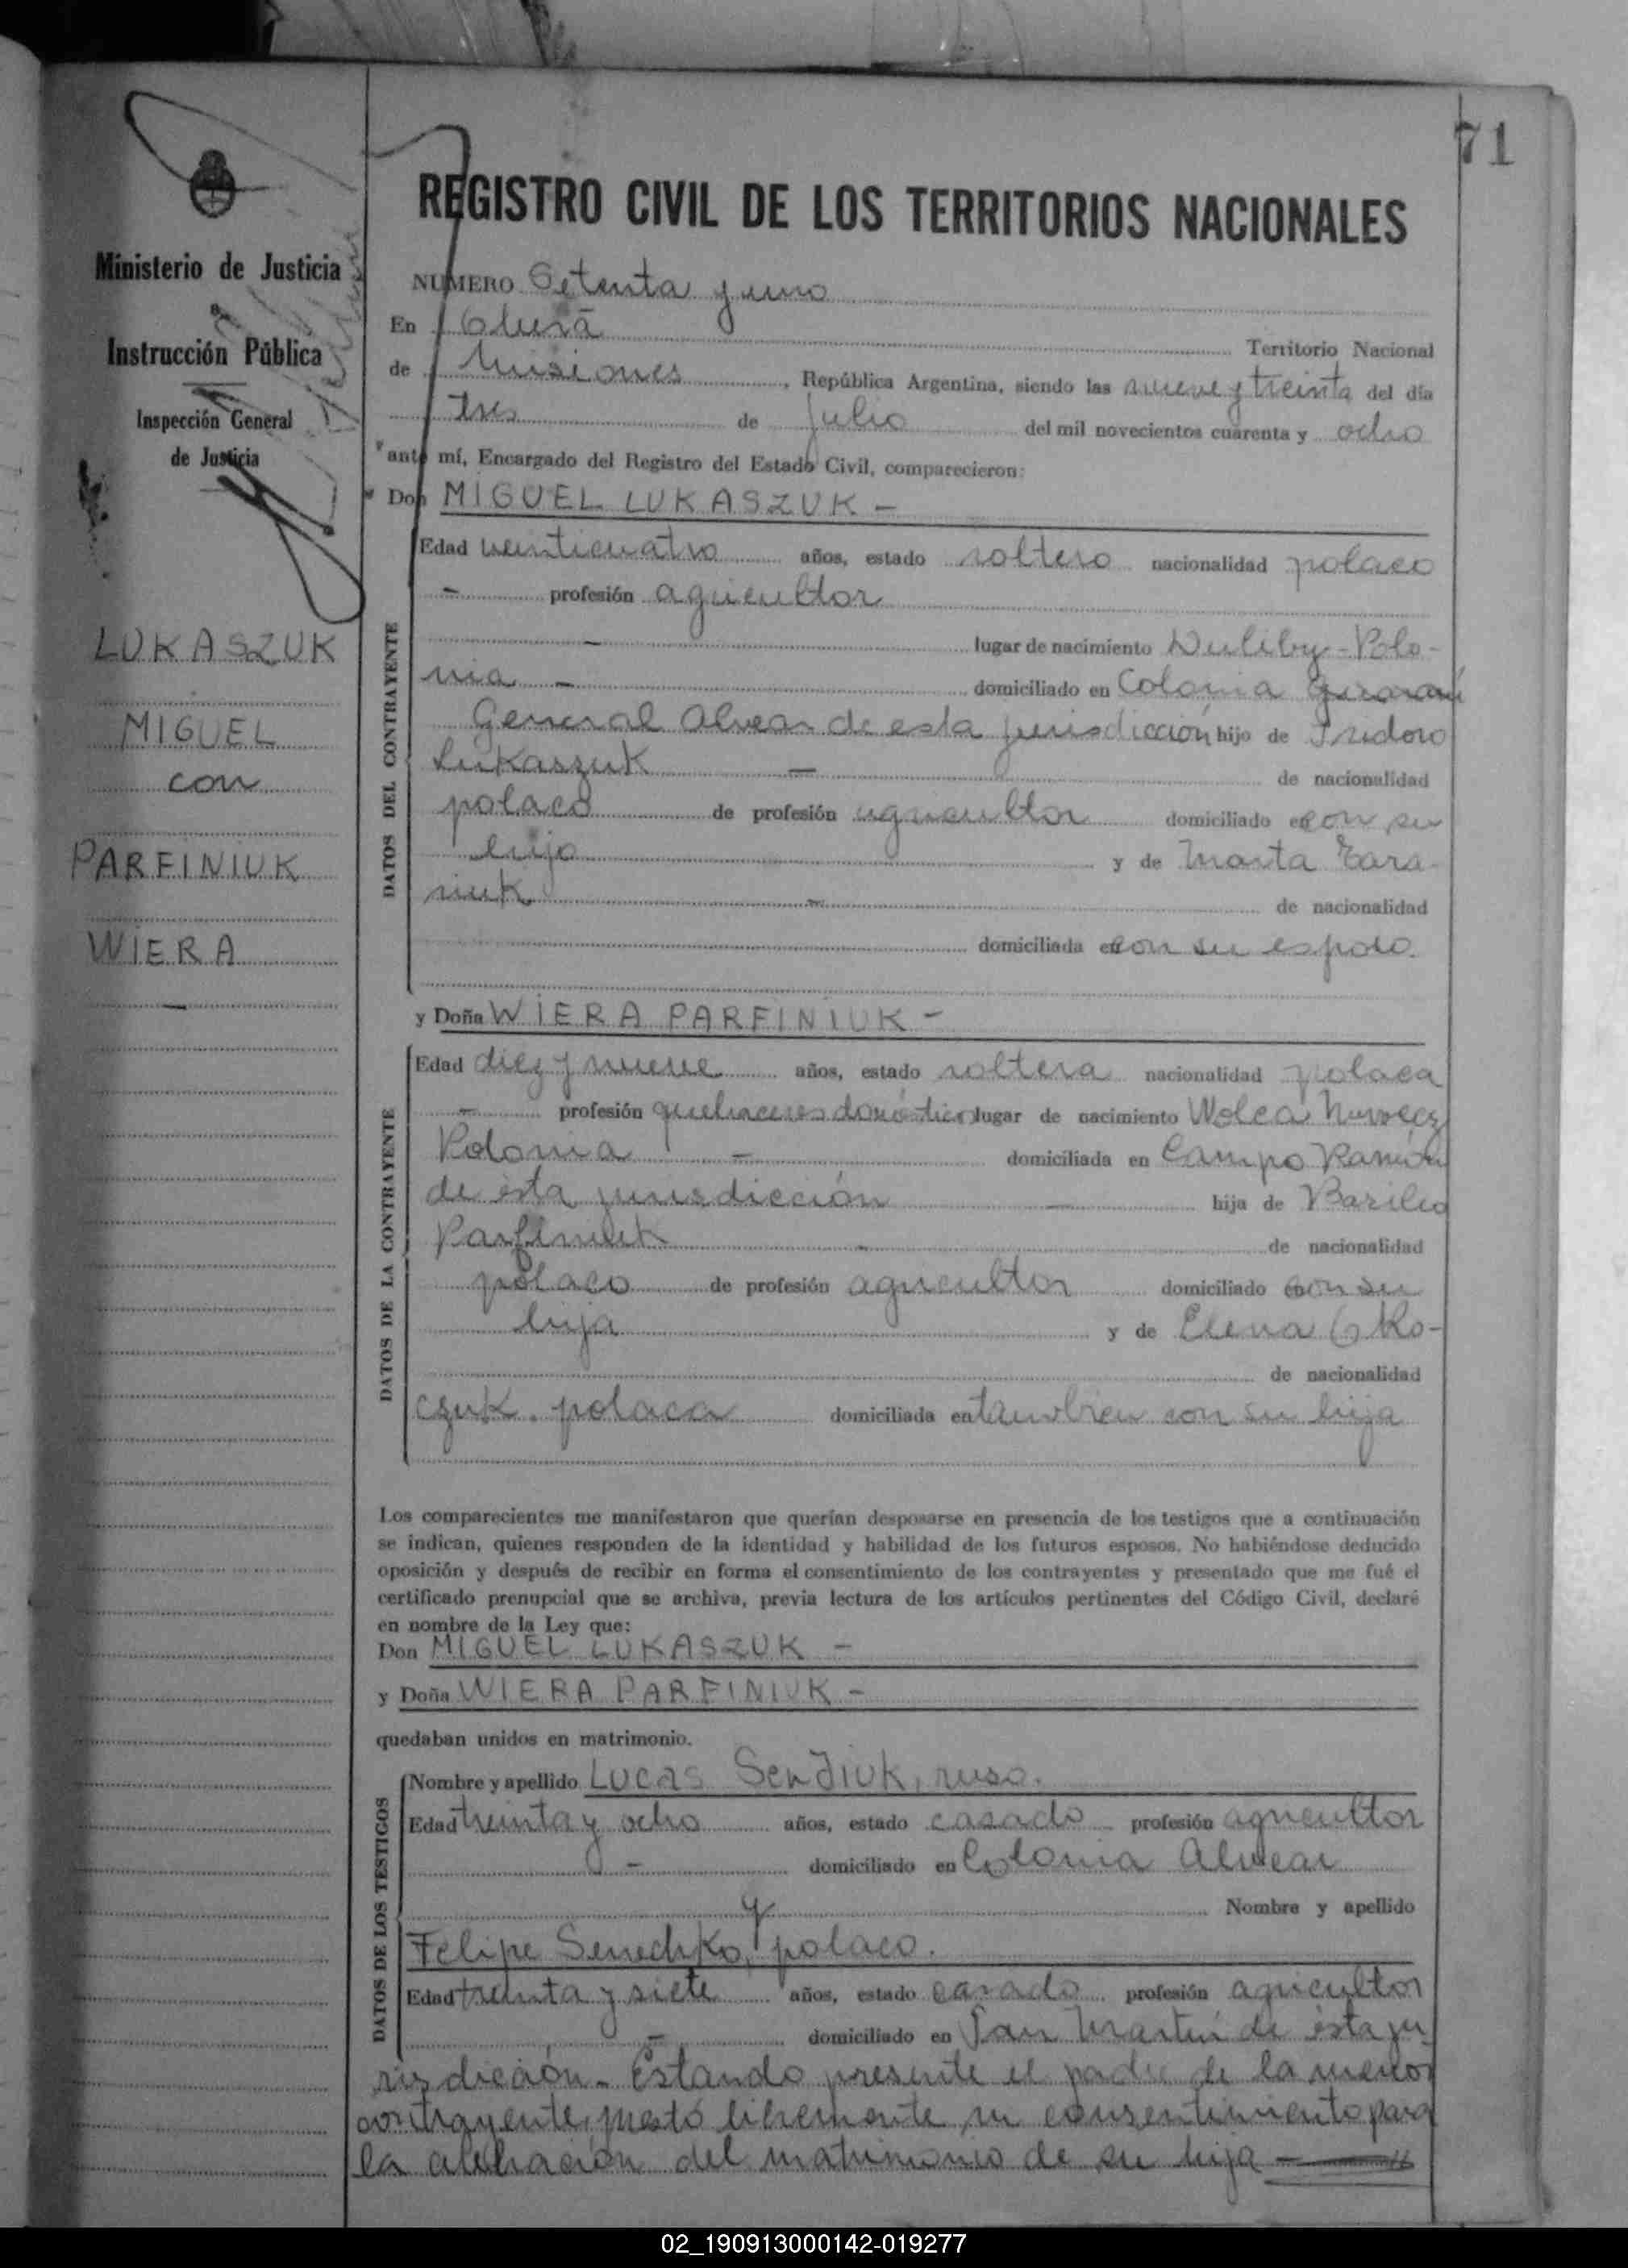 71
REGISTRO CIVIL DE LOS TERRITORIOS NACIONALES
Ministerio de Justicia
e
Instrucción Pública
Inspección General
de Justicia
LUKASZUK
MIGUEL
con
PARFINIUK
WIERA
NUMERO Setenta y uno
En Oberá Territorio Nacional
de Misiones, República Argentina, siendo las nueve y treinta del día
tres de julio del mil novecientos cuarenta y ocho
ante mí, Encargado del Registro del Estado Civil, comparecieron:
Don MIGUEL LUKASZUK -
DATOS DEL CONTRAYENTE
Edad veinticuatro años, estado soltero nacionalidad polaco
- profesión agricultor
- lugar de nacimiento Duliby - Polo-
nia - domiciliado en Colonia
General Alvear de esta jurisdicción hijo de Isidoro
Lukaszuk - de nacionalidad
polaco de profesión agricultor domiciliado en con su
hijo y de Marta Tara-
niuk - de nacionalidad
domiciliada en con su esposo.
y Doña WIERA PARFINIUK -
DATOS DE LA CONTRAYENTE
Edad diez y nueve años, estado soltera nacionalidad polaca
- profesión quehaceres domésticos lugar de nacimiento Wolca
Polonia - domiciliada en Campo Ramón
de ésta jurisdicción - hija de Basilio
Parfiniuk - de nacionalidad
polaco de profesión agricultor domiciliado en con su
hija y de Elena Oko-
de nacionalidad
czuk. polaca domiciliada en tambien con su hija
Los comparecientes me manifestaron que querían desposarse en presencia de los testigos que a continuación
se indican, quienes responden de la identidad y habilidad de los futuros esposos. No habiéndose deducido
oposición y después de recibir en forma el consentimiento de los contrayentes y presentado que me fué el
certificado prenupcial que se archiva, previa lectura de los artículos pertinentes del Código Civil, declaré
en nombre de la Ley que:
Don MIGUEL LUKASZUK -
y Doña WIERA PARFINIUK -
quedaban unidos en matrimonio.
DATOS DE LOS TESTIGOS
Nombre y apellido Lucas Sendiuk, ruso.
Edad treinta y ocho años, estado casado profesión agricultor
- domiciliado en Colonia Alvear
y Nombre y apellido
Felipe Senechko, polaco.
Edad treinta y siete años, estado casado profesión agricultor
- domiciliado en San Martín de ésta ju-
risdicción. - Estando presente el padre de la menor
contrayente, prestó libremente su consentimiento para
la celebración del matrimonio de su hija
02_190913000142-019277